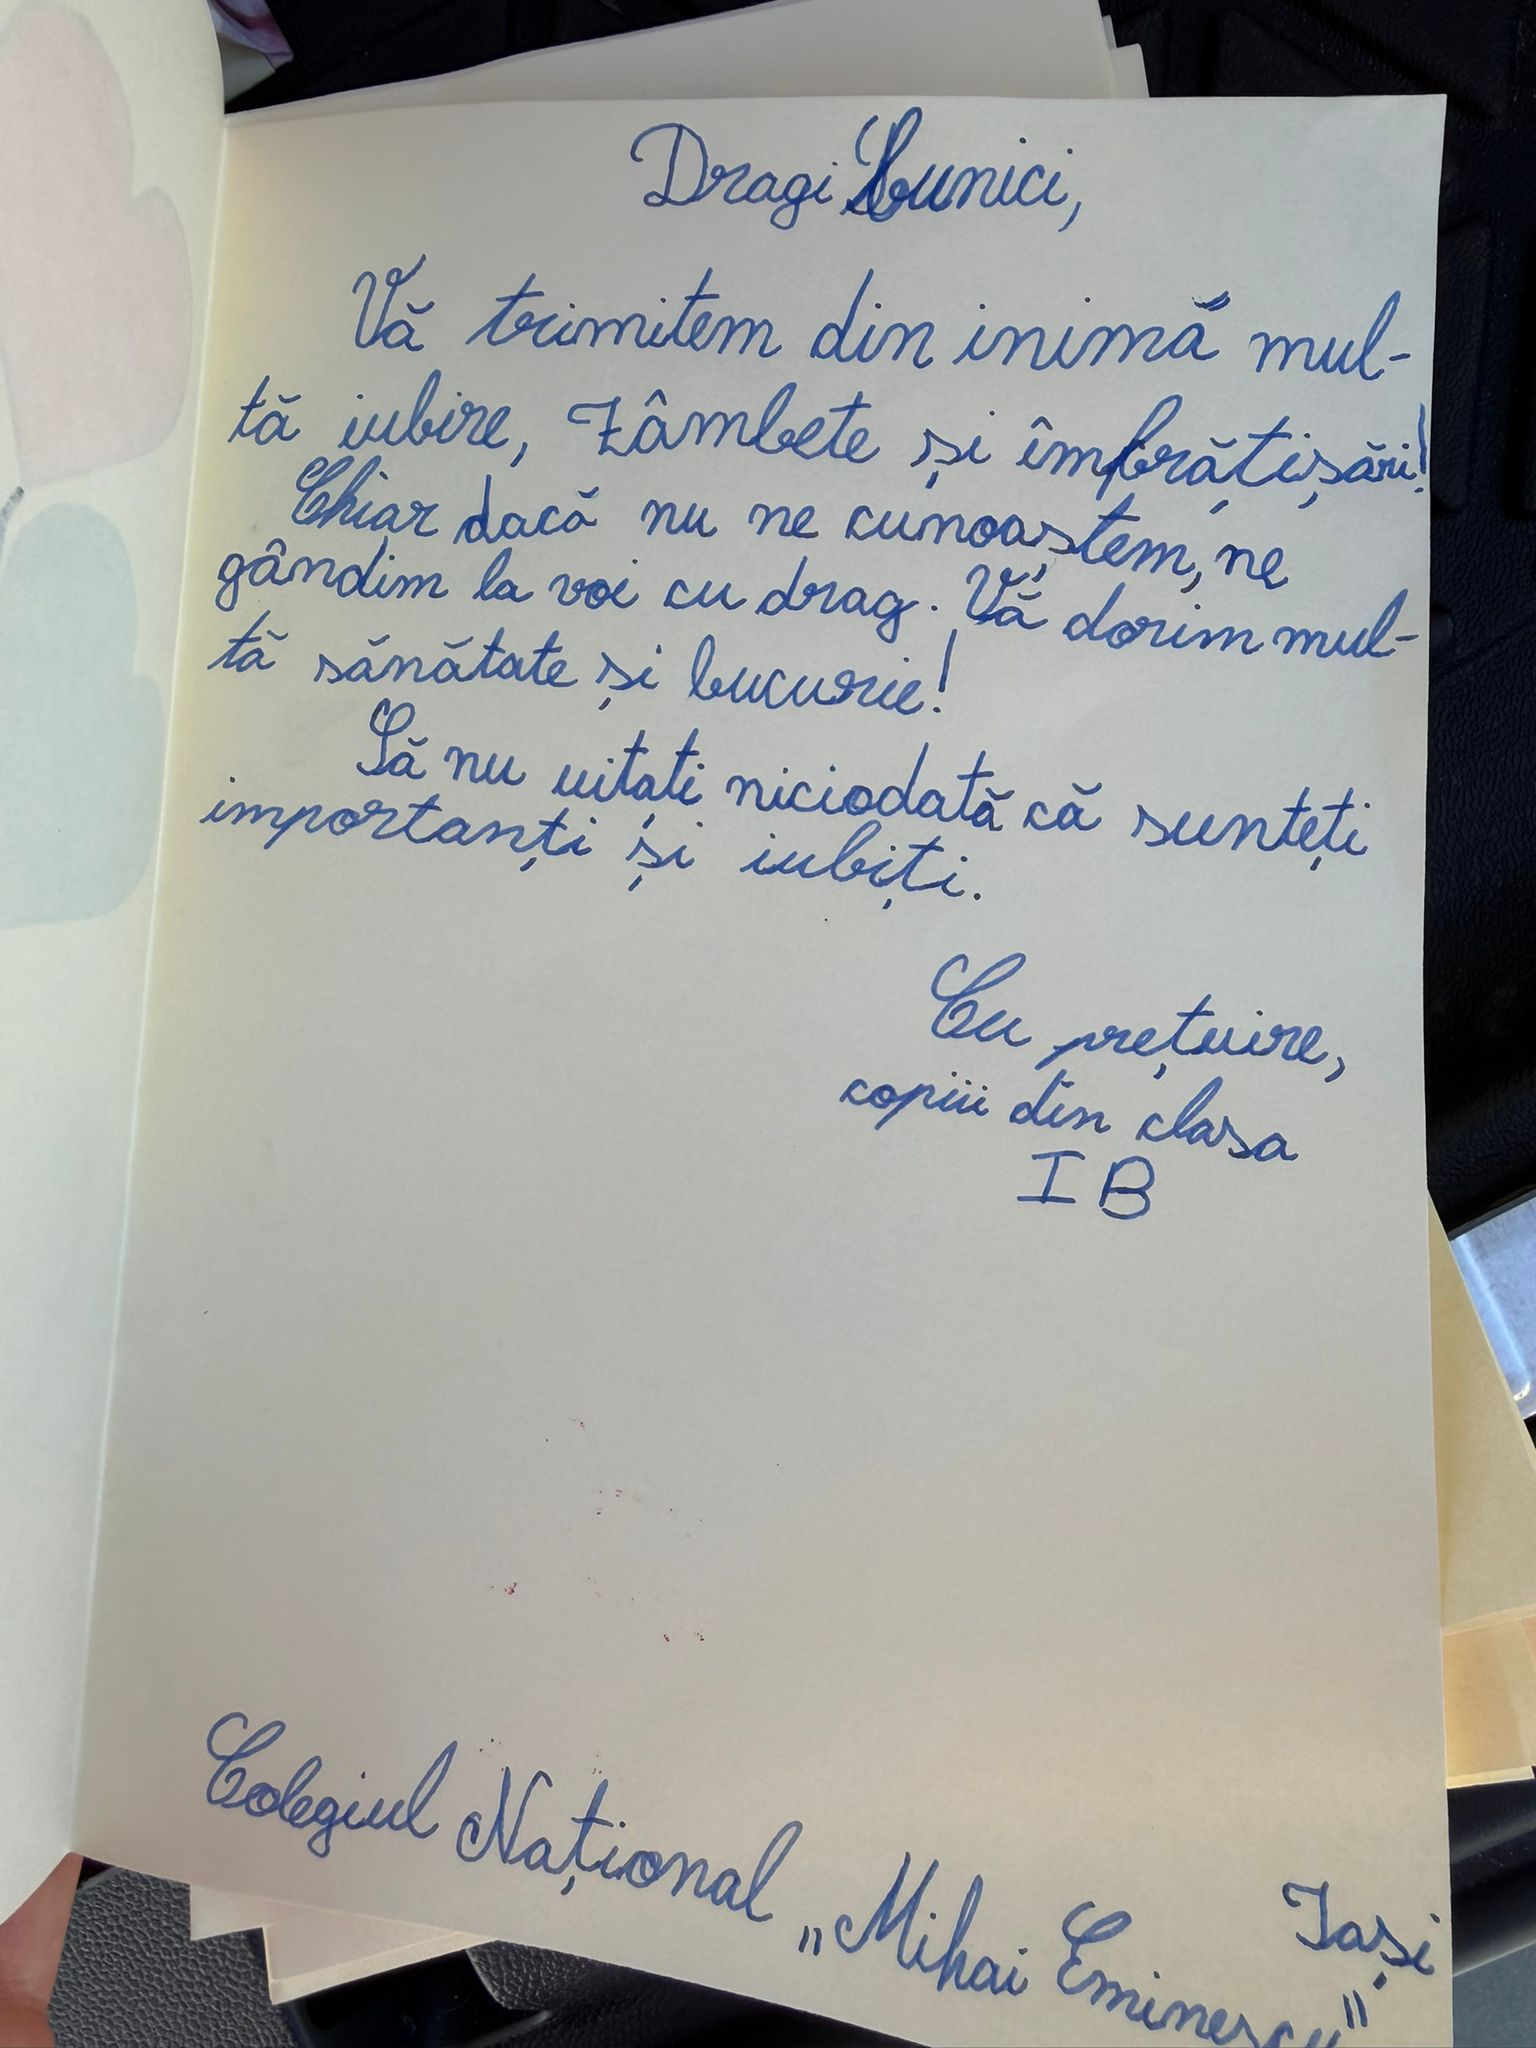 Dragi bunici,
Vă trimitem din inimă mul-
tă iubire, zâmbete și îmbrățișări!
Chiar dacă nu ne cunoaștem, ne
gândim la voi cu drag. Vă dorim mul-
tă sănătate și bucurie!
Să nu uitați niciodată că sunteți
importanți și iubiți.
Cu prețuire,
copiii din clasa
I B
Colegiul Național „Mihai Eminescu"
Iași